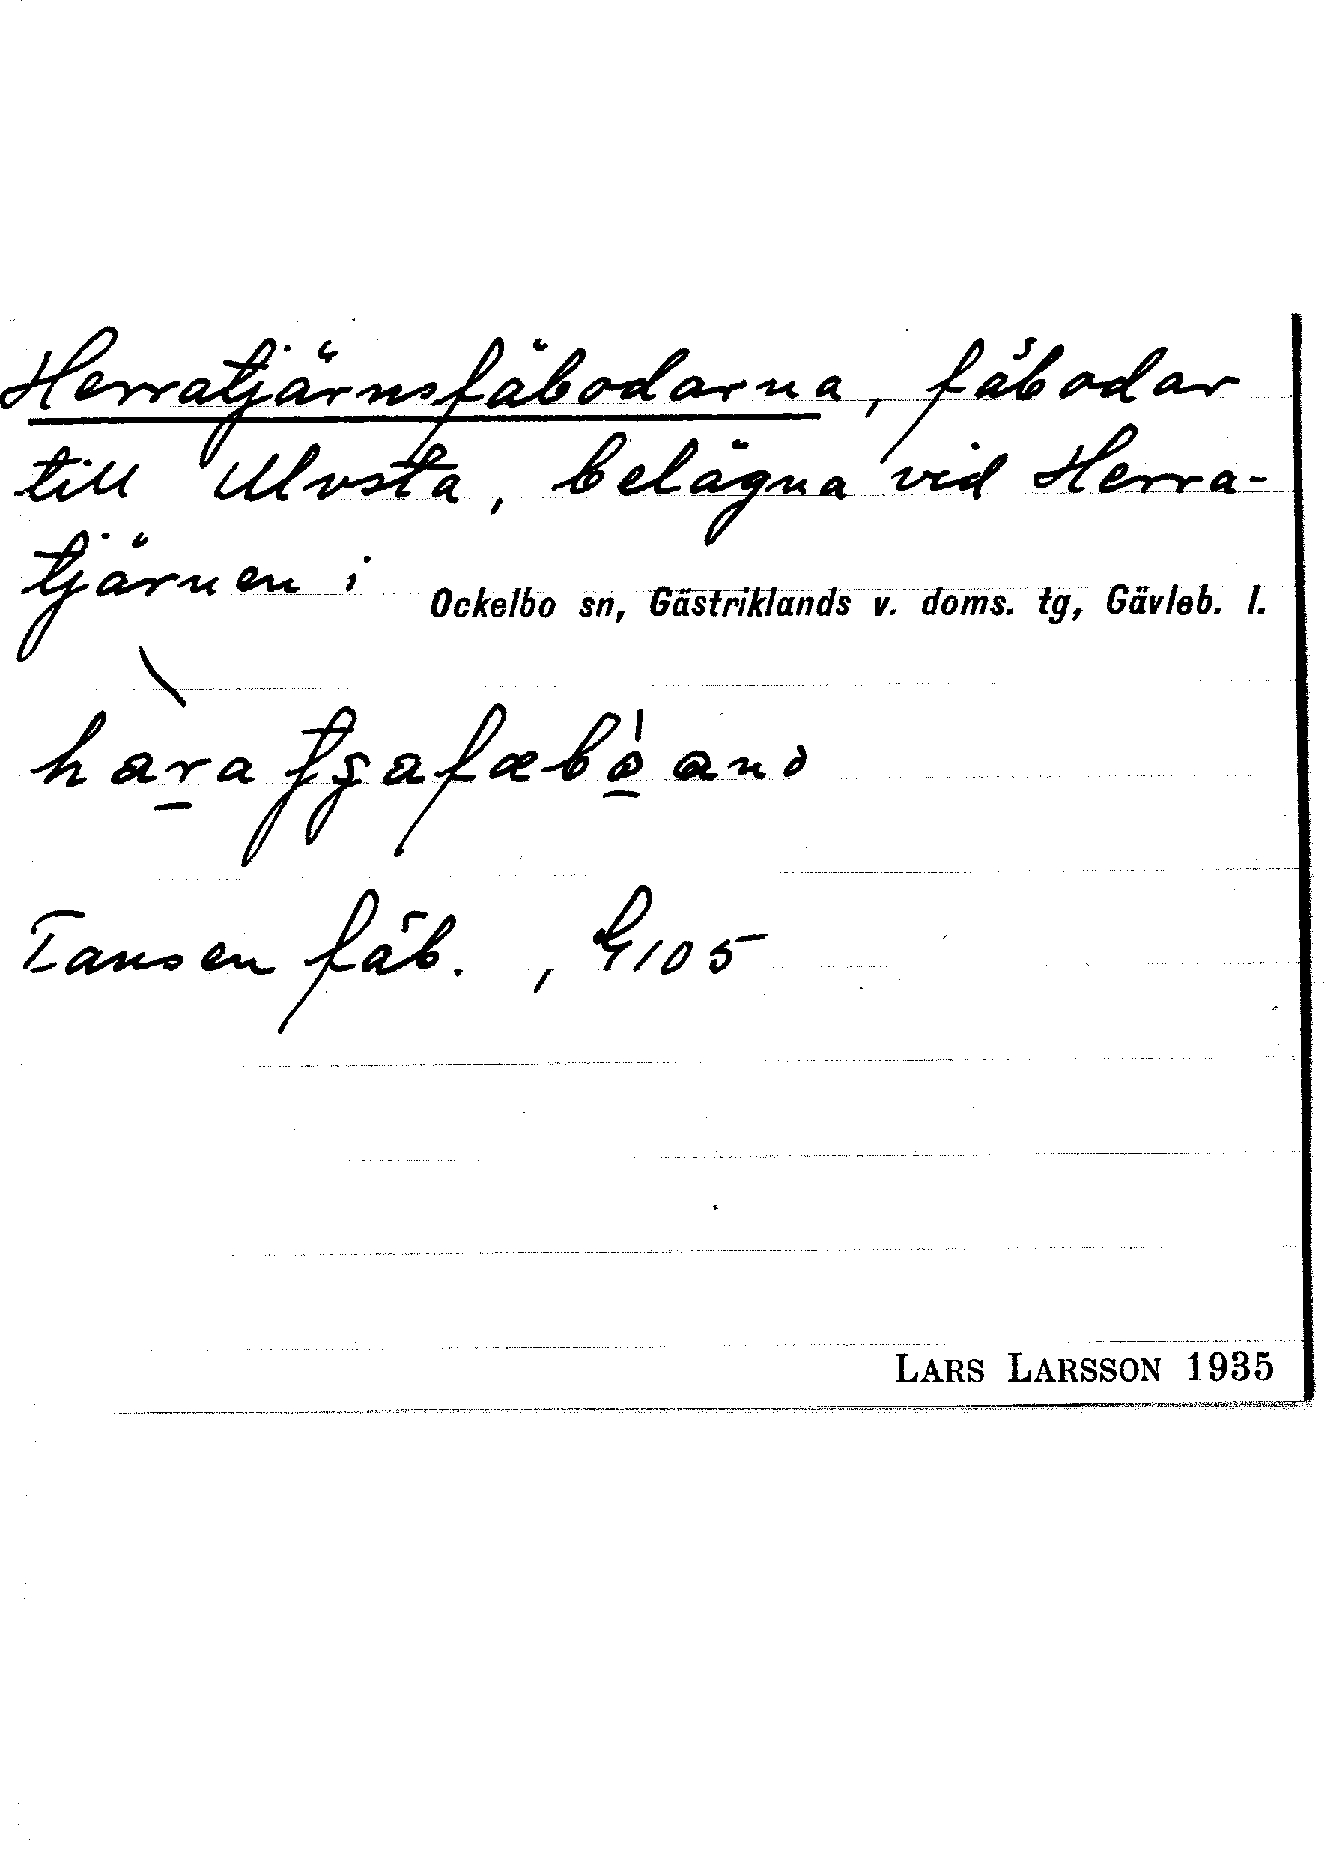 Herratjärnsfäbodarna, fäbodar
till Ulvsta, belägna vid Herra-
tjärnen i Ockelbo sn, Gästriklands v. doms. tg, Gävleb. l.
Tansen fäb., G105
LARS LARSSON 1935